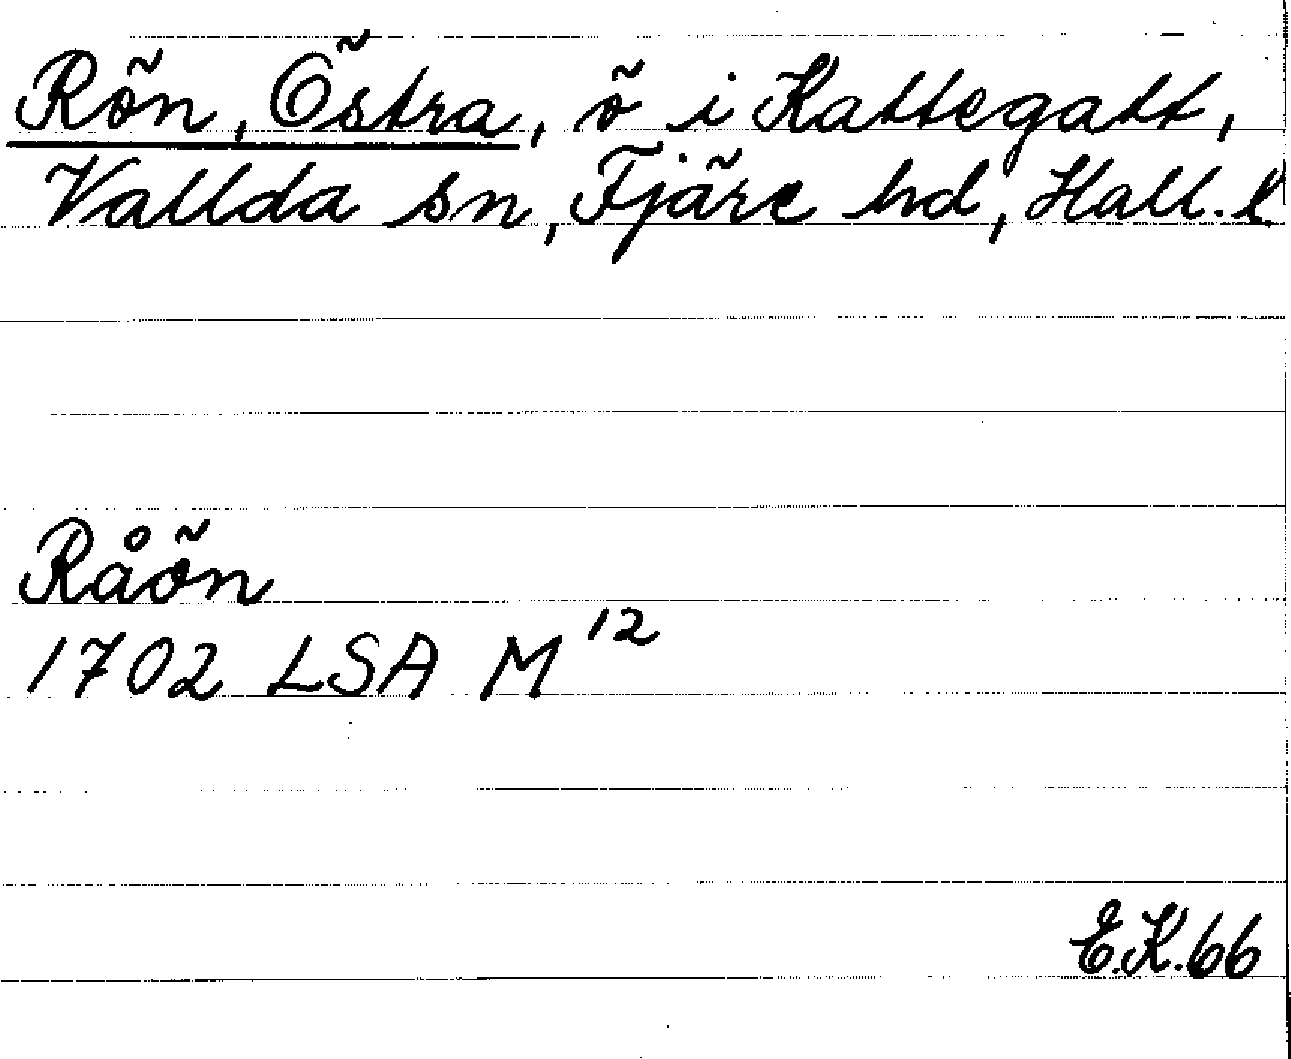 Rön, Östra, ö i Kattegatt,
Vallda sn, Fjäre hd, Hall. l
Råön
1702 LSA M 12
E.K.66